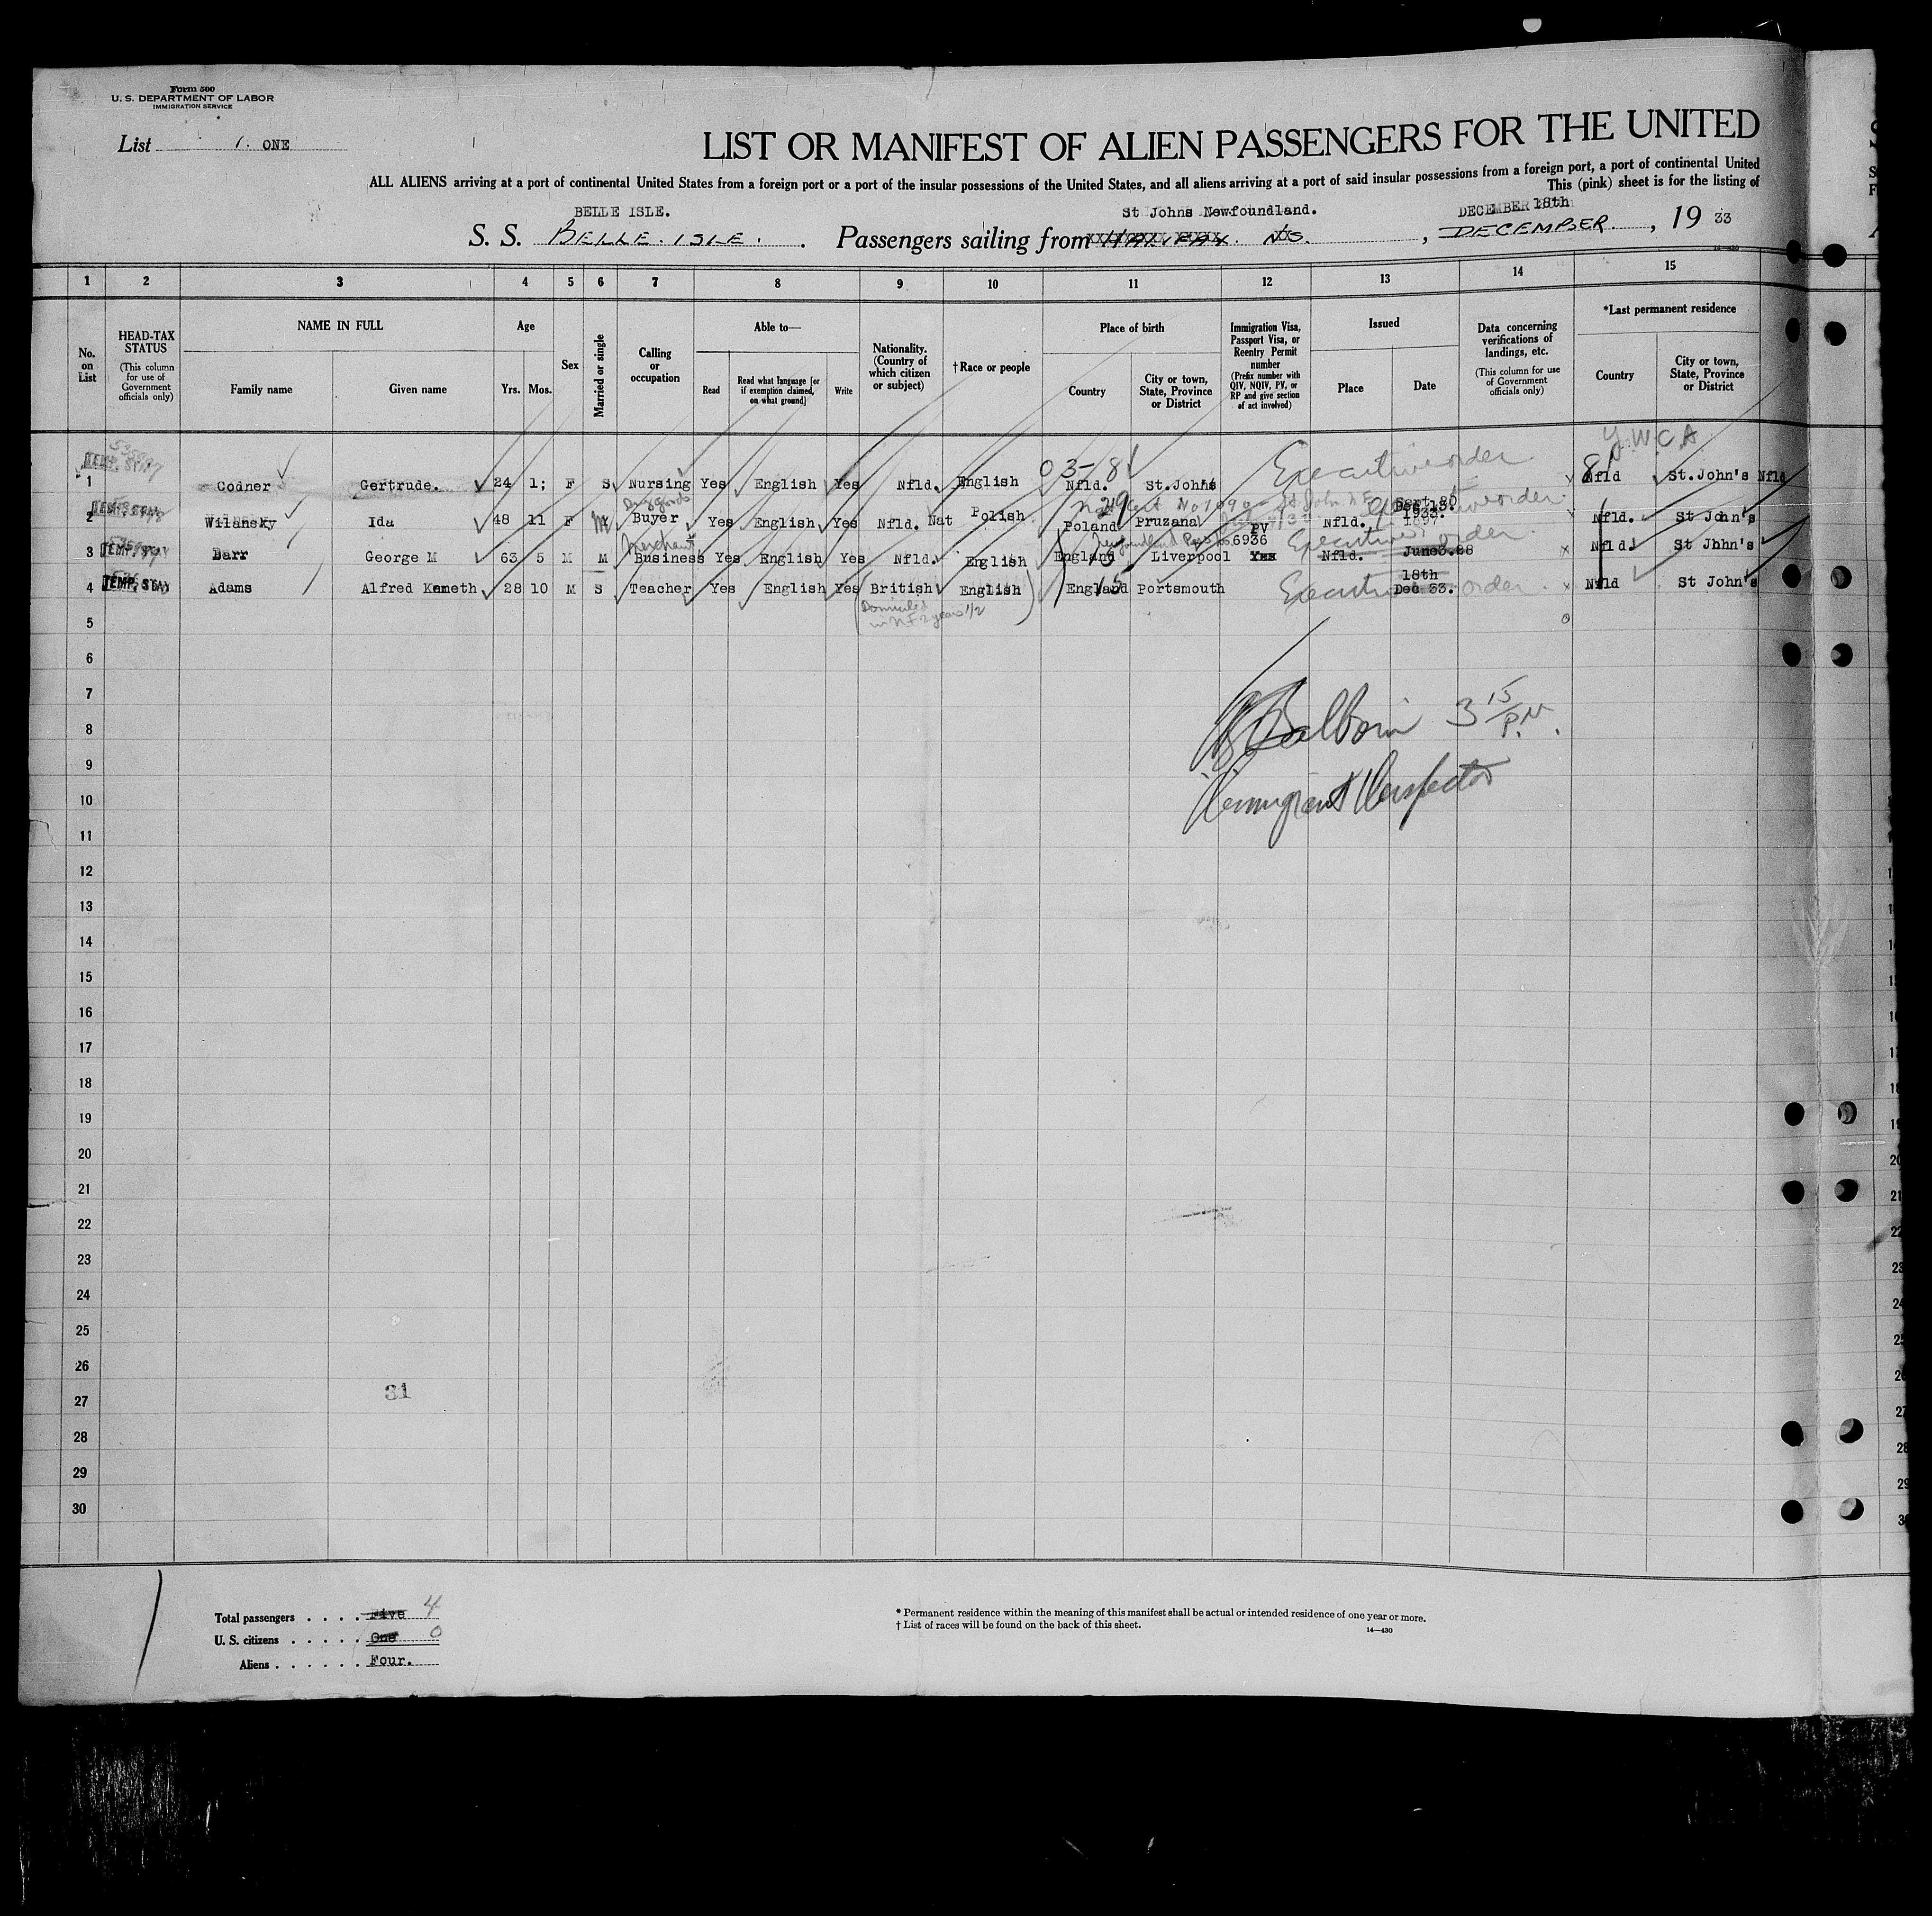 Form 500
U. S. DEPARTMENT OF LABOR
IMMIGRATION SERVICE
List 1. ONE
LIST OR MANIFEST OF ALIEN PASSENGERS FOR THE UNITED
ALL ALIENS arriving at a port of continental United States from a foreign port or a port of the insular possessions of the United States, and all aliens arriving at a port of said insular possessions from a foreign port, a port of continental United
This (pink) sheet is for the listing of
BELLE ISLE. St Johns Newfoundland. DECEMBER 18th
S. S. BELLE. ISLE. Passengers sailing from HALIFAX. NS. , DECEMBER. , 19 33
1 2 3 4 5 6 7 8 9 10 11 12 13 14 15
No. on List
HEAD-TAX STATUS
(This column for use of Government officials only)
NAME IN FULL
Family name
Given name
Age
Yrs. Mos.
Sex
Married or single
Calling or occupation
Able to—
Read
Read what language [or if exemption claimed, on what ground]
Write
Nationality. (Country of which citizen or subject)
†Race or people
Place of birth
Country
City or town, State, Province or District
Immigration Visa, Passport Visa, or Reentry Permit number
(Prefix number with QIV, NQIV, PV, or RP and give section of act involved)
Issued
Place
Date
Data concerning verifications of landings, etc.
(This column for use of Government officials only)
*Last permanent residence
Country
City or town, State, Province or District
Y.W.C.A
03-8
TEMP. STAY
1 Codner Gertrude. 24 1; F S Nursing Yes English Yes Nfld. English Nfld. St.Johns Executive order Nfld St.John's Nfld
Dry goods
29
TEMP. STAY
2 Wilansky Ida 48 11 F M Buyer Yes English Yes Nfld. Nat Polish Poland Pruzana PV Nfld. 1933. Executive order Nfld. St John's
Merchant
6936
TEMP. STAY
3 Barr George M 63 5 M M Business Yes English Yes Nfld. English England Liverpool Yes Nfld. June3.28 Executive order Nfld. St Jhhn's
TEMP. STAY
18th
4 Adams Alfred Kenneth 28 10 M S Teacher Yes English Yes British English England 15 Portsmouth Executive Dec 33. order Nfld St John's
Domiciled
in N.F. 2 years 1/2
5
6
7
8
9
10
11
12
13
14
15
16
17
18
19
20
21
22
23
24
25
26
27
28
29
30
Baldwin 3 15 P.M.
Immigrant Inspector
31
Total passengers . . . . Five 4
U. S. citizens . . . . . One 0
Aliens . . . . . . Four.
* Permanent residence within the meaning of this manifest shall be actual or intended residence of one year or more.
† List of races will be found on the back of this sheet.
14—430